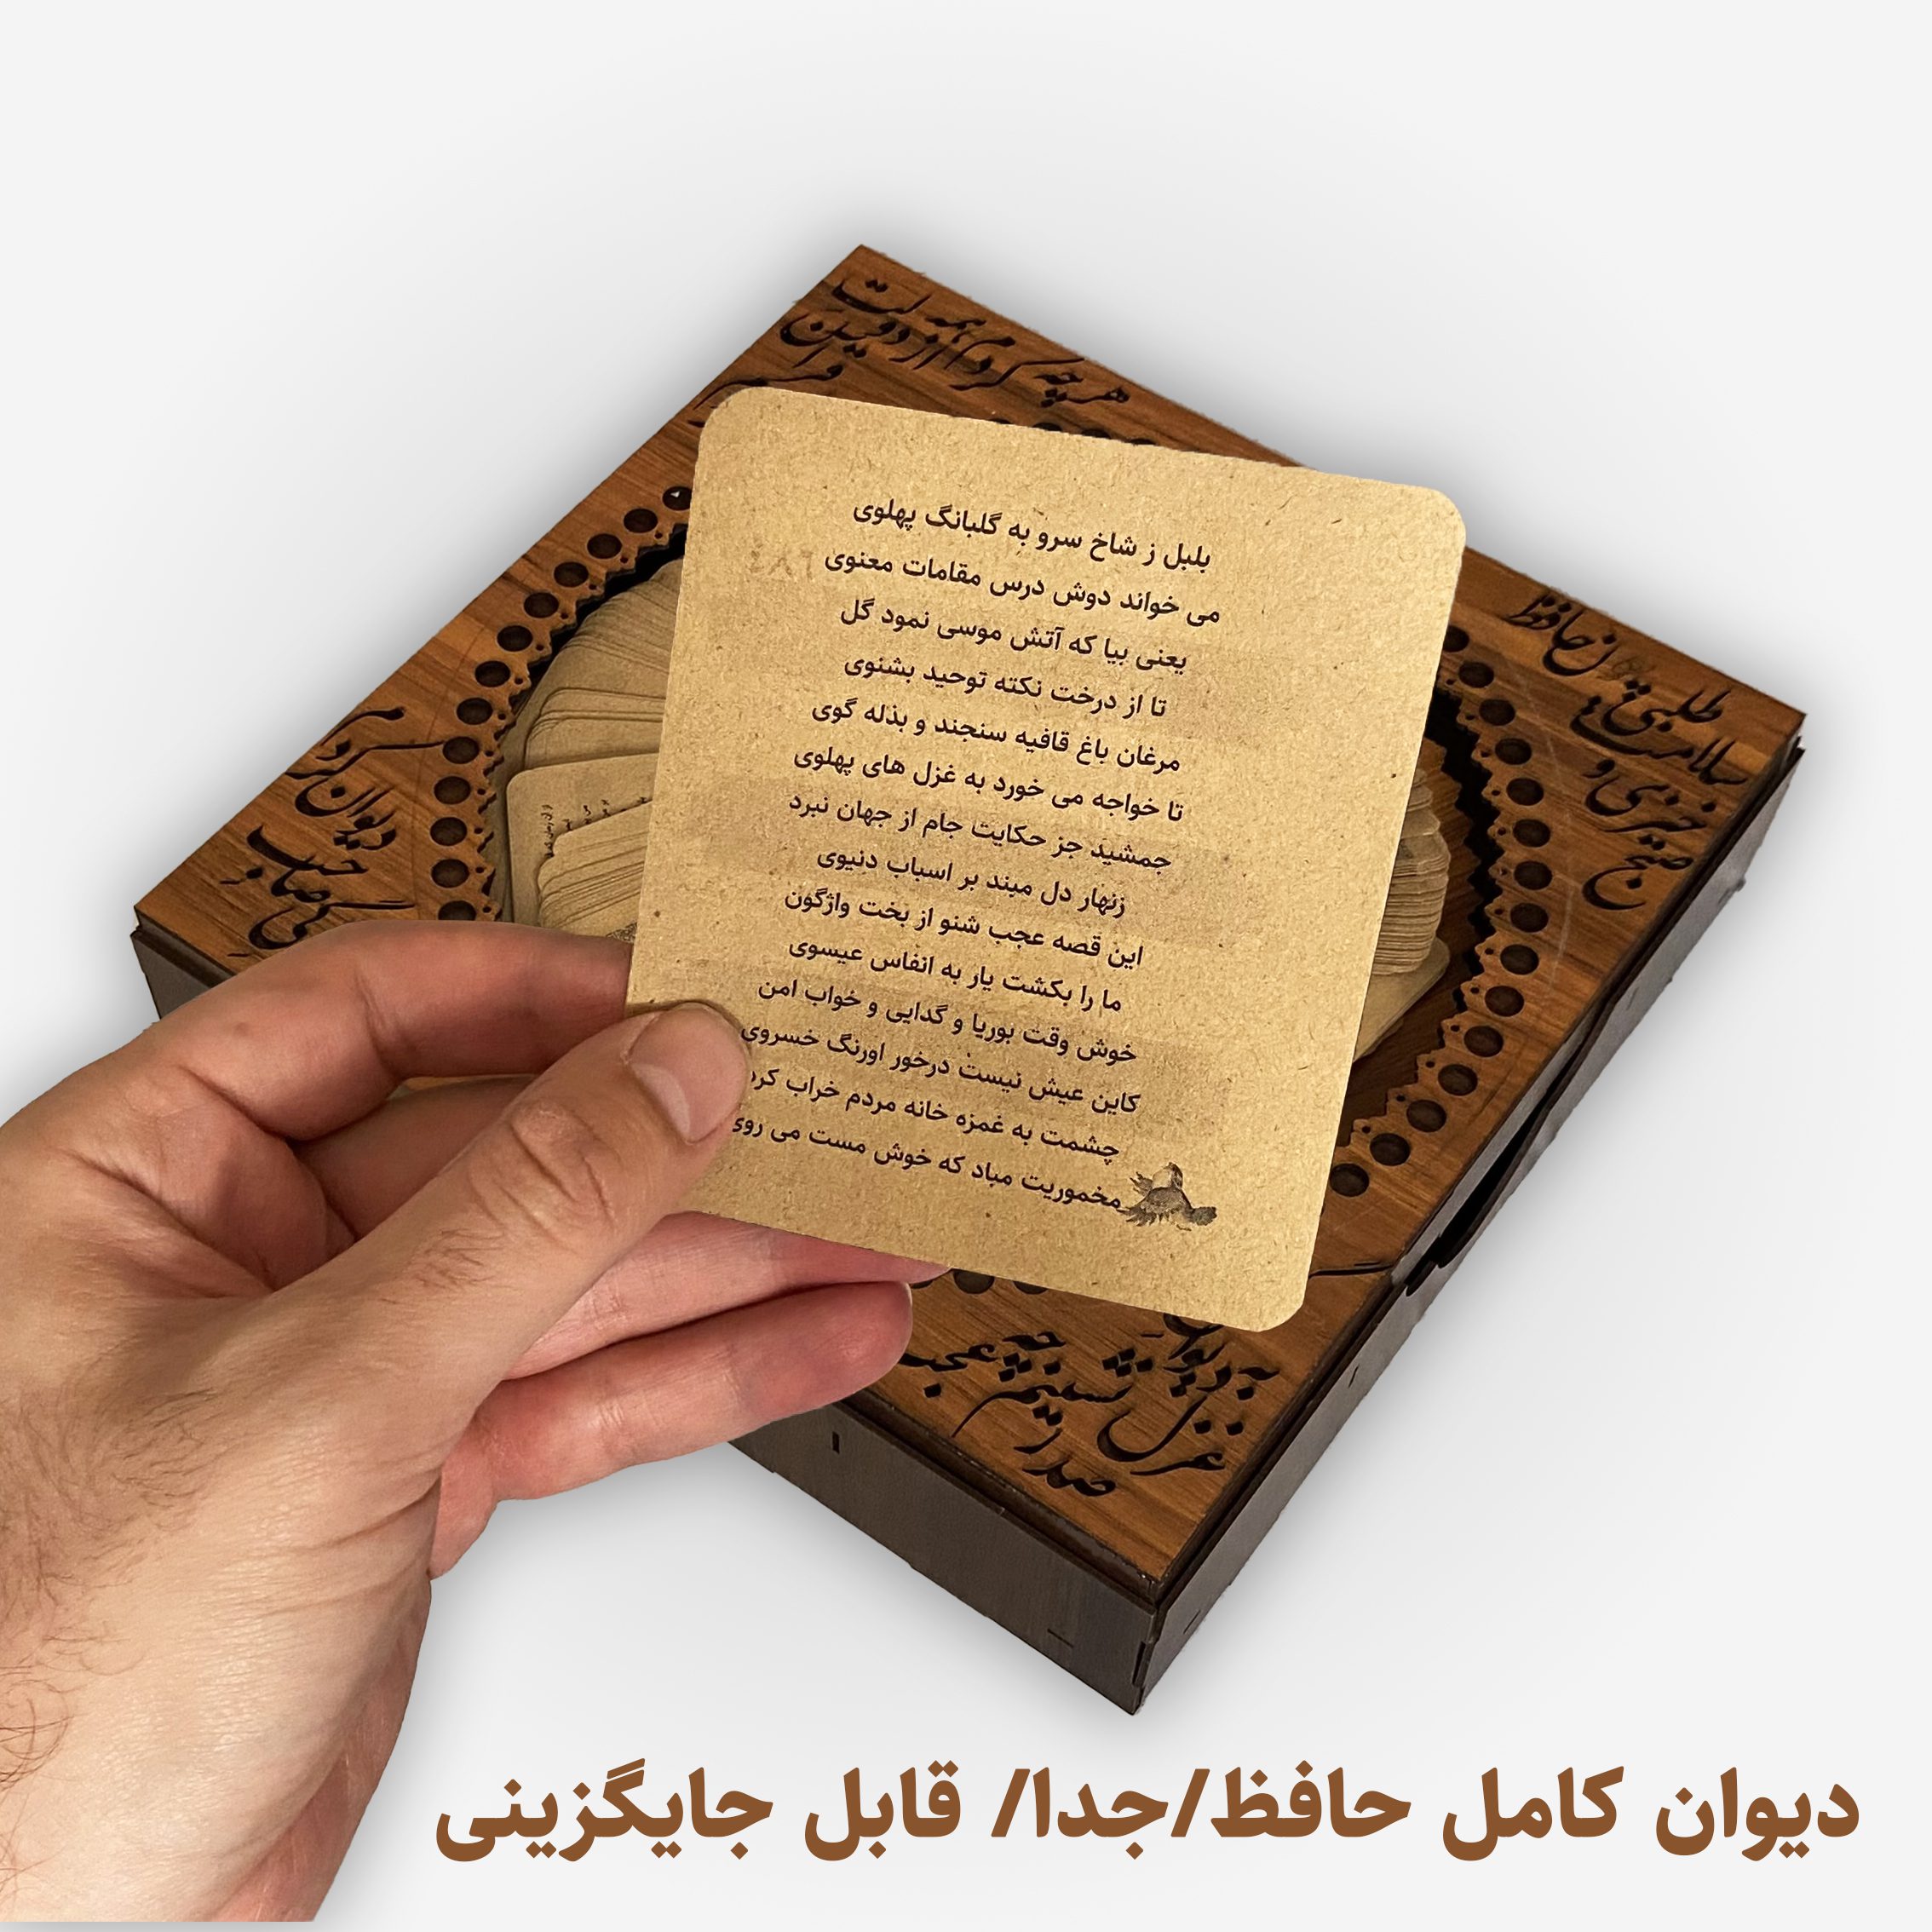 هر چه کردم همه از دولت
قرآن
طلبی چون حافظ
سلامت
صبح خیزی و
دیوان
گر
صاحب
بلبل ز شاخ سرو به گلبانگ پهلوی
می خواند دوش درس مقامات معنوی
یعنی بیا که آتش موسی نمود گل
تا از درخت نکته توحید بشنوی
مرغان باغ قافیه سنجند و بذله گوی
تا خواجه می خورد به غزل های پهلوی
جمشید جز حکایت جام از جهان نبرد
زنهار دل مبند بر اسباب دنیوی
این قصه عجب شنو از بخت واژگون
ما را بکشت یار به انفاس عیسوی
خوش وقت بوریا و گدایی و خواب امن
کاین عیش نیست درخور اورنگ خسروی
چشمت به غمزه خانه مردم خراب کرد
مخموریت مباد که خوش مست می روی
به دیوان
غزل
صدر نشینم چه عجب
دیوان کامل حافظ/جدا/ قابل جایگزینی